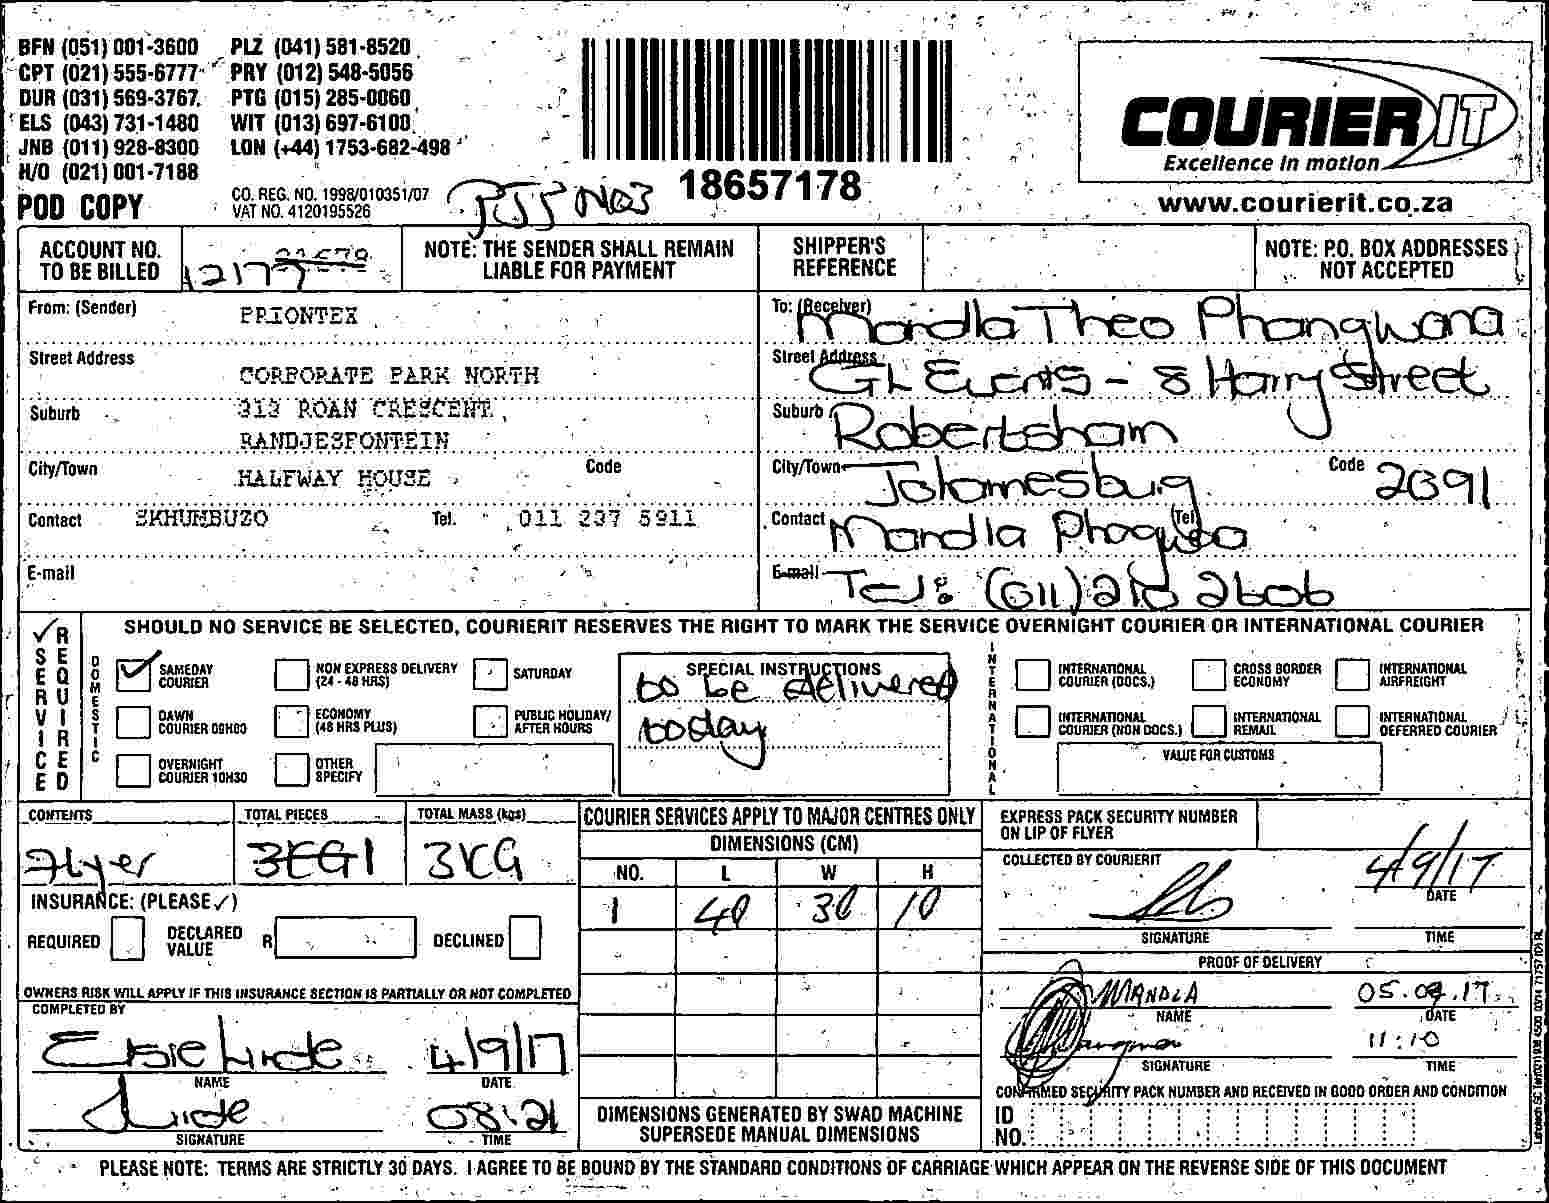 BFN (051) 001-3600 PLZ (041) 581-8520
CPT (021) 555-6777 PRY (012) 548-5056
DUR (031) 569-3767 PTG (015) 285-0060
ELS (043) 731-1480 WIT (013) 697-6100
JNB (011) 928-8300 LON (+44) 1753-682-498
H/O (021) 001-7188
POD COPY
CO. REG. NO. 1998/010351/07
VAT NO. 4120195526
18657178
COURIER IT
Excellence in motion
www.courierit.co.za
ACCOUNT NO. TO BE BILLED
12177
NOTE: THE SENDER SHALL REMAIN LIABLE FOR PAYMENT
SHIPPER'S REFERENCE
NOTE: P.O. BOX ADDRESSES NOT ACCEPTED
From: (Sender) PRIONTEX
Street Address CORPORATE PARK NORTH
Suburb 313 ROAN CRESCENT,
RANDJESFONTEIN
City/Town HALFWAY HOUSE Code
Contact SKHUMBUZO Tel. 011 237 5911
E-mail
To: (Receiver) Mandla Theo Phangwana
Street Address GL Events - 8 Harry Street
Suburb Robertsham
City/Town Code 2091
Contact Mandla Tel
E-mail Tel: (011) 210 2606
SERVICE REQUIRED
SHOULD NO SERVICE BE SELECTED, COURIERIT RESERVES THE RIGHT TO MARK THE SERVICE OVERNIGHT COURIER OR INTERNATIONAL COURIER
DOMESTIC
SAMEDAY COURIER
NON EXPRESS DELIVERY (24 - 48 HRS)
SATURDAY
DAWN COURIER 09H00
ECONOMY (48 HRS PLUS)
PUBLIC HOLIDAY/ AFTER HOURS
OVERNIGHT COURIER 10H30
OTHER SPECIFY
SPECIAL INSTRUCTIONS
to be delivered
today
INTERNATIONAL
INTERNATIONAL COURIER (DOCS.)
CROSS BORDER ECONOMY
INTERNATIONAL AIRFREIGHT
INTERNATIONAL COURIER (NON DOCS.)
INTERNATIONAL REMAIL
INTERNATIONAL DEFERRED COURIER
VALUE FOR CUSTOMS
CONTENTS TOTAL PIECES TOTAL MASS (kgs)
Flyer 3KG 1 3KG
INSURANCE: (PLEASE ✓)
REQUIRED DECLARED VALUE R DECLINED
OWNERS RISK WILL APPLY IF THIS INSURANCE SECTION IS PARTIALLY OR NOT COMPLETED
COMPLETED BY
4/9/17
NAME DATE
08:21
SIGNATURE TIME
COURIER SERVICES APPLY TO MAJOR CENTRES ONLY
DIMENSIONS (CM)
NO. L W H
1 40 30 10
DIMENSIONS GENERATED BY SWAD MACHINE
SUPERSEDE MANUAL DIMENSIONS
EXPRESS PACK SECURITY NUMBER
ON LIP OF FLYER
COLLECTED BY COURIERIT
4/9/17
DATE
SIGNATURE TIME
PROOF OF DELIVERY
MANDLA 05.09.17
NAME DATE
11:10
SIGNATURE TIME
CONFIRMED SECURITY PACK NUMBER AND RECEIVED IN GOOD ORDER AND CONDITION
ID NO.
PLEASE NOTE: TERMS ARE STRICTLY 30 DAYS. I AGREE TO BE BOUND BY THE STANDARD CONDITIONS OF CARRIAGE WHICH APPEAR ON THE REVERSE SIDE OF THIS DOCUMENT